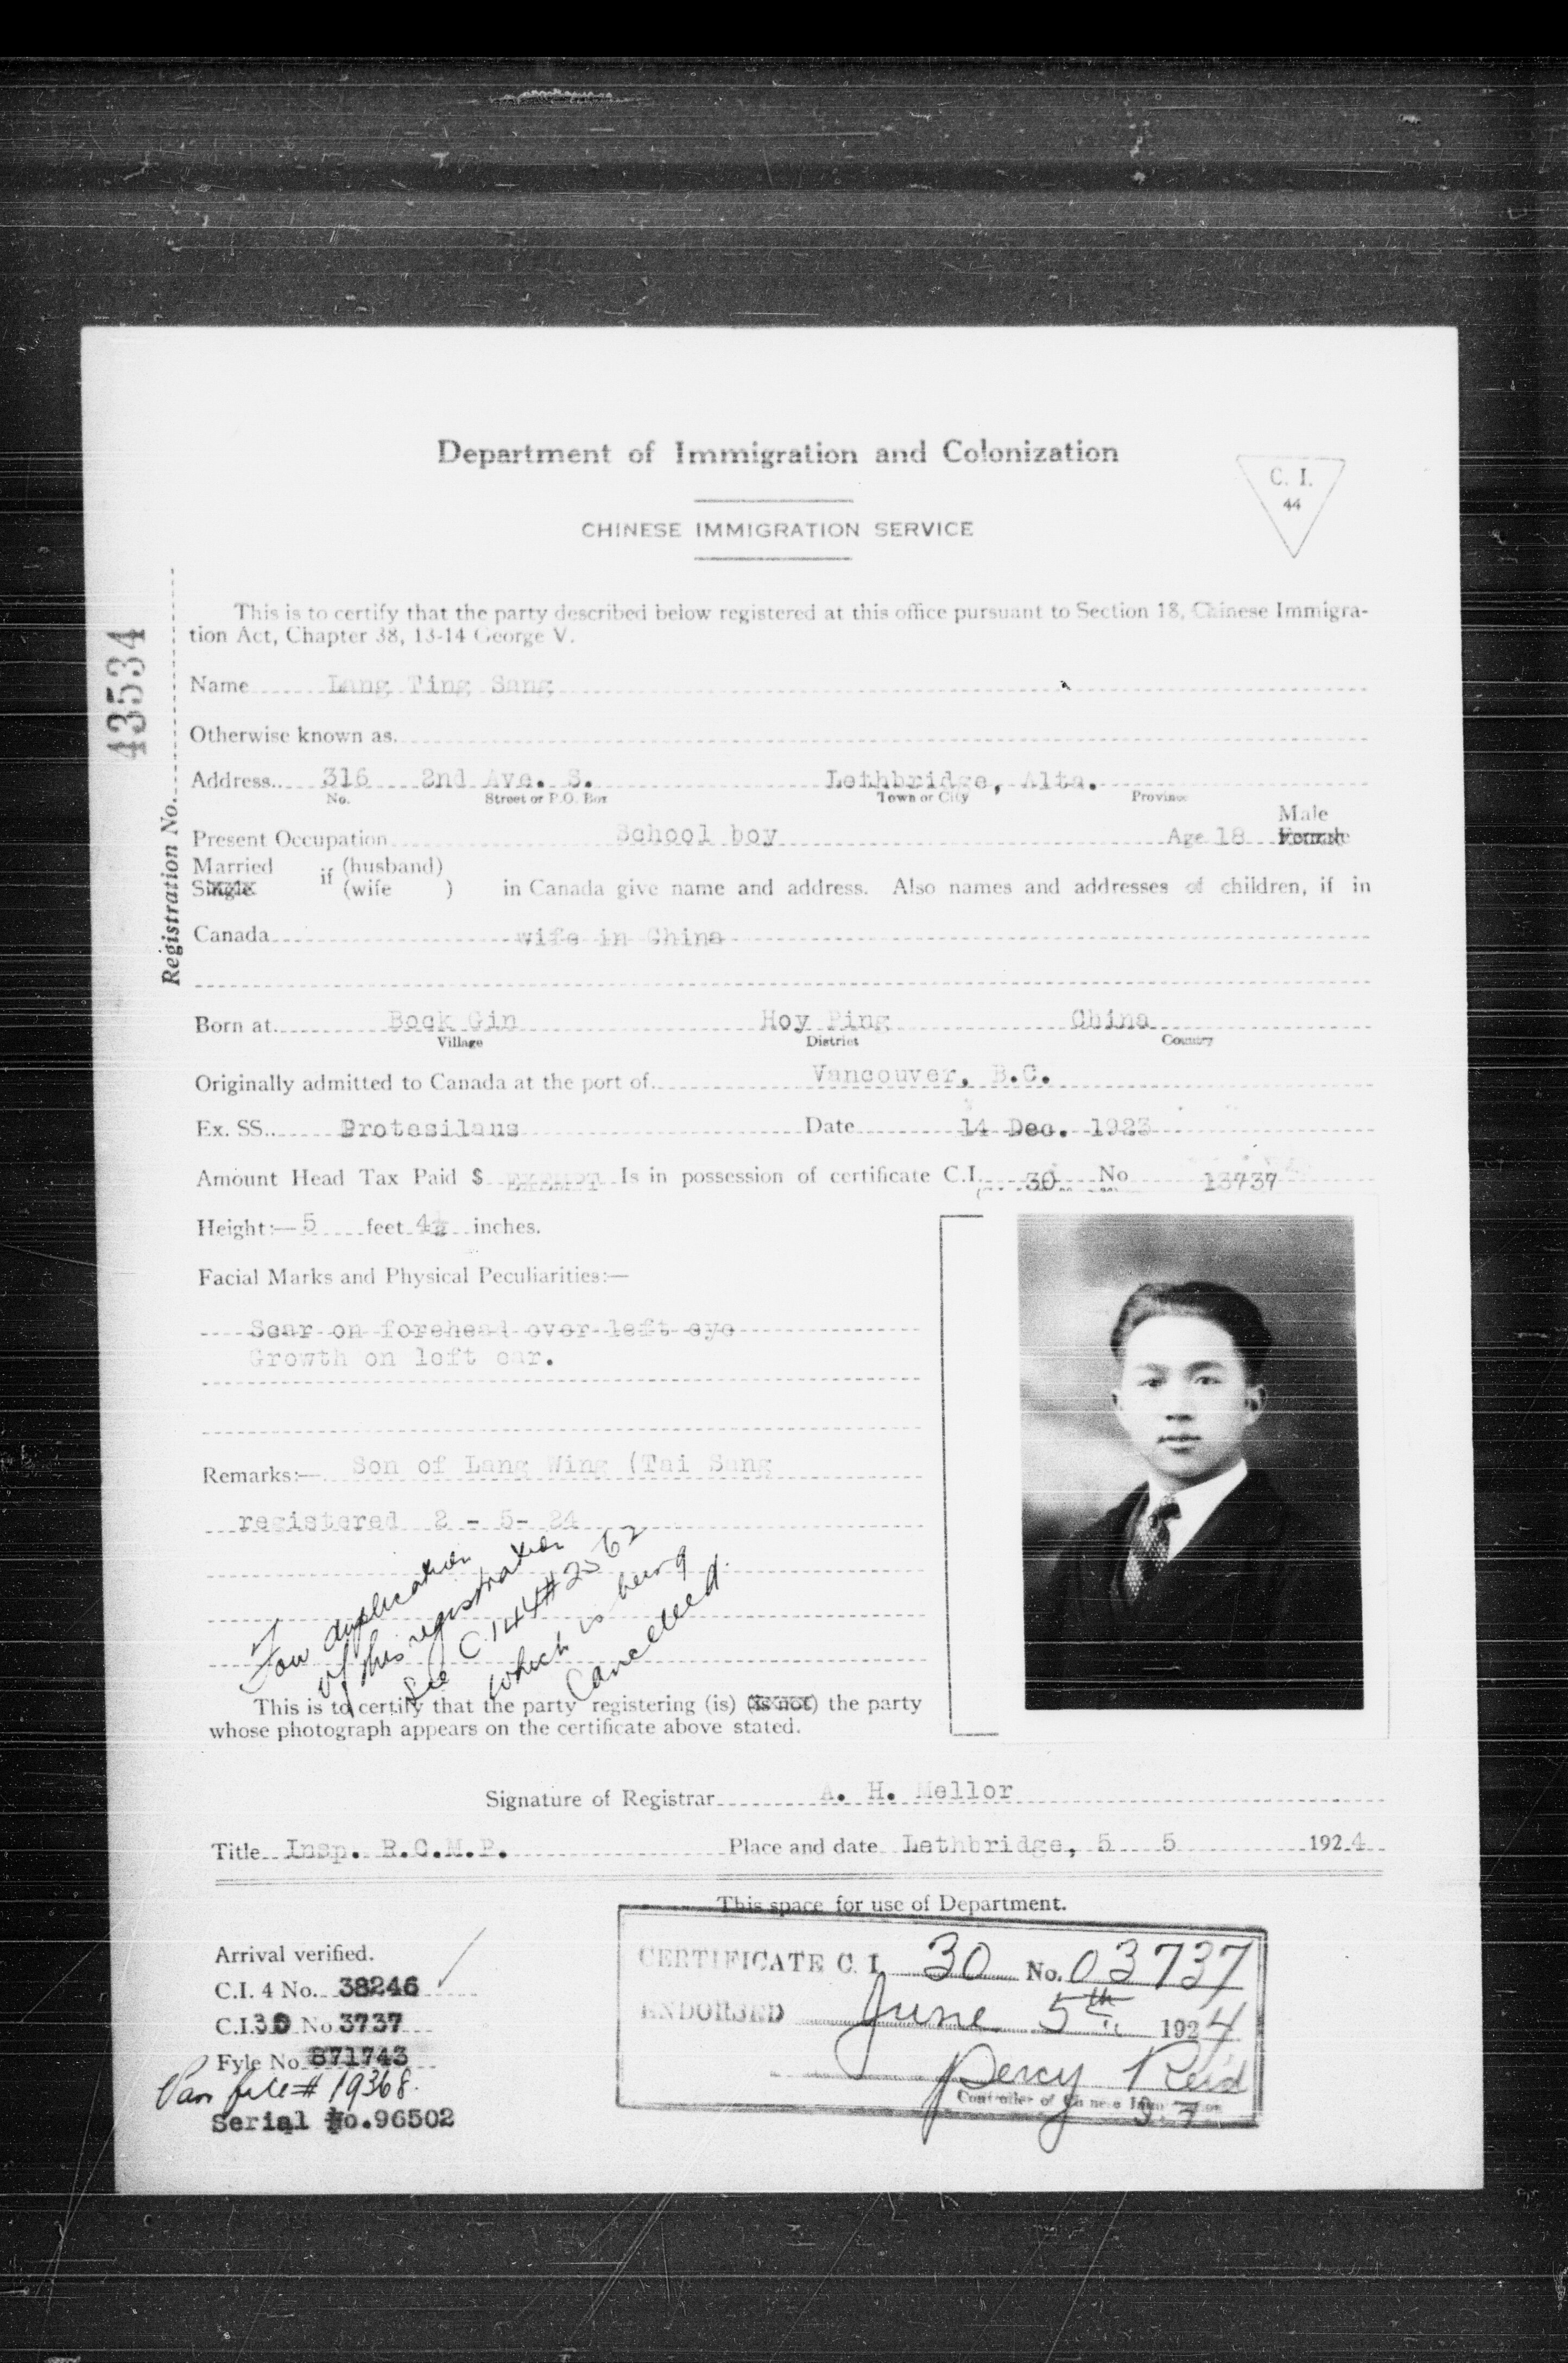 Department of Immigration and Colonization
CHINESE IMMIGRATION SERVICE
C. I.
44
Registration No. 43534
This is to certify that the party described below registered at this office pursuant to Section 18, Chinese Immigra-
tion Act, Chapter 38, 13-14 George V.
Name Lang Ting Sang
Otherwise known as.
Address.. 316 2nd Ave. S. Lethbridge, Alta.
No. Street or P.O. Box Town or City Province
Male
Present Occupation School boy Age 18 Female
Married if (husband)
Single (wife ) in Canada give name and address. Also names and addresses of children, if in
Canada wife in China
Born at Bock Gin Hoy Ping China
Village District Country
Originally admitted to Canada at the port of Vancouver, B.C.
Ex. SS. Protesilaus Date 14 Dec. 1923
Amount Head Tax Paid $ EXEMPT Is in possession of certificate C.I. 30 No 13737
Height:— 5 feet 4½ inches.
Facial Marks and Physical Peculiarities:—
Scar on forehead over left eye
Growth on left ear.
Remarks:— Son of Lang Wing (Tai Sang
registered 2 - 5- 24
For duplication
of this registration
See C.I 44# 2562
which is being
Cancelled.
This is to certify that the party registering (is) (is not) the party
whose photograph appears on the certificate above stated.
Signature of Registrar A. H. Mellor
Title Insp. R.C.M.P. Place and date Lethbridge, 5 5 1924
This space for use of Department.
Arrival verified.
C.I. 4 No. 38246
C.I.30 No 3737
Fyle No. 871743
Van file # 19368.
Serial No.96502
CERTIFICATE C. I. 30 No. 03737
ENDORSED June 5th 1924
Percy Reid
Controller of Chinese Immigration